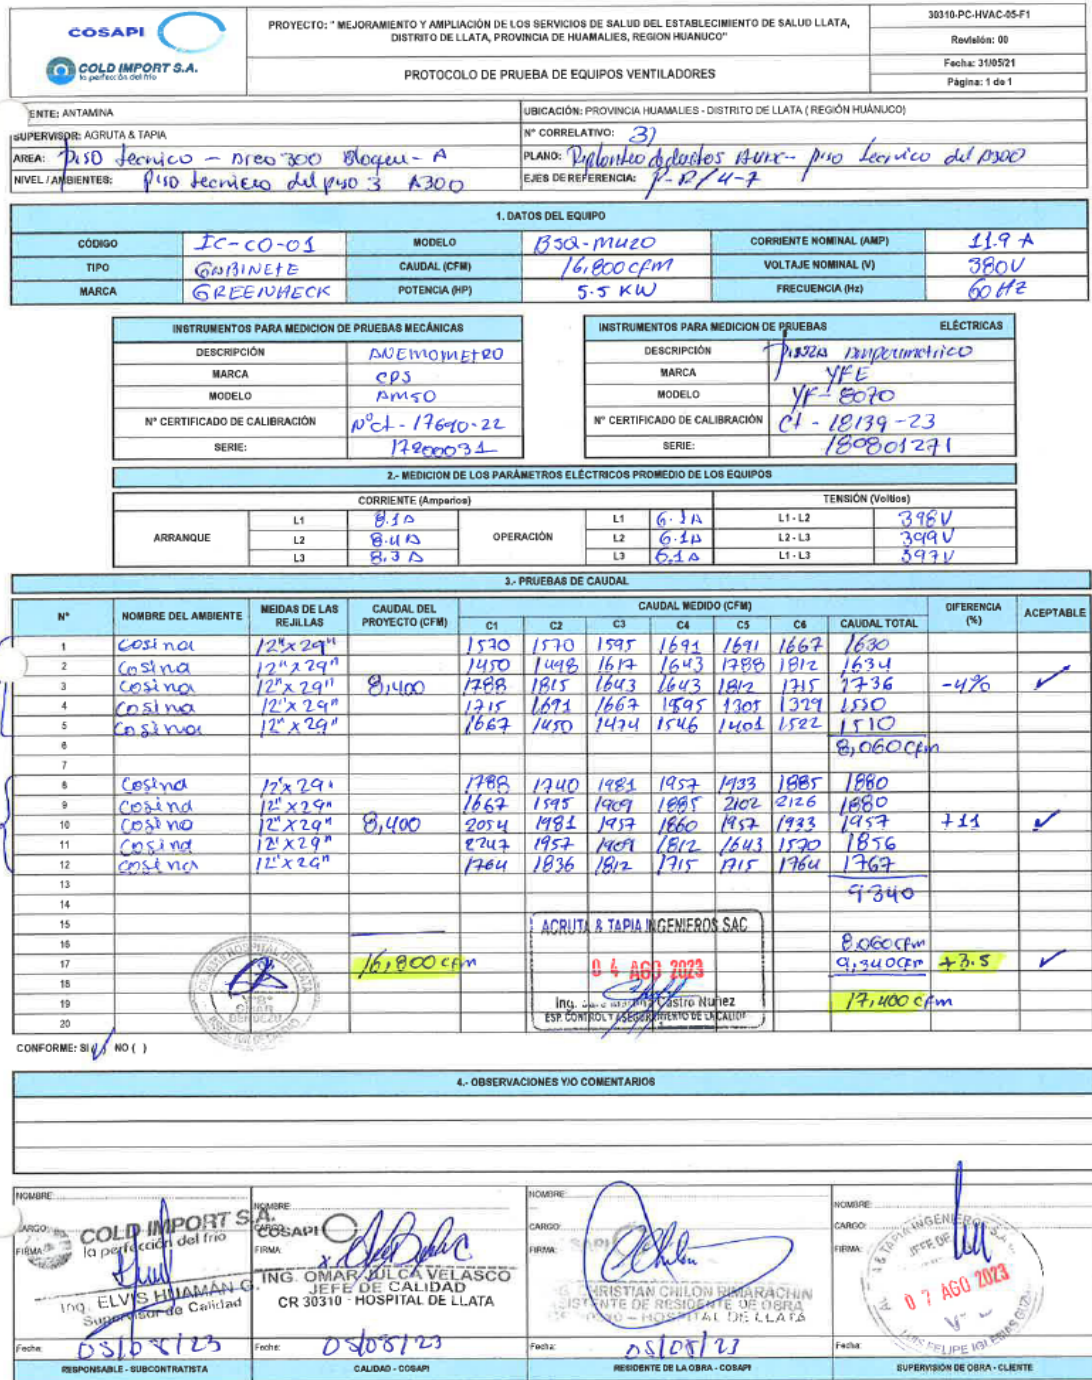 COSAPI
COLD IMPORT S.A.
la perfección del frío
PROYECTO: " MEJORAMIENTO Y AMPLIACIÓN DE LOS SERVICIOS DE SALUD DEL ESTABLECIMIENTO DE SALUD LLATA, DISTRITO DE LLATA, PROVINCIA DE HUAMALIES, REGION HUANUCO"
PROTOCOLO DE PRUEBA DE EQUIPOS VENTILADORES
30310-PC-HVAC-05-F1
Revisión: 00
Fecha: 31/05/21
Página: 1 de 1
ENTE: ANTAMINA
UBICACIÓN: PROVINCIA HUAMALIES - DISTRITO DE LLATA ( REGIÓN HUÁNUCO)
SUPERVISOR: AGRUTA & TAPIA
N° CORRELATIVO: 31
AREA: Piso tecnico - Area 300 Bloque - A
PLANO: Replanteo de ductos HVAC - piso tecnico del A300
NIVEL / AMBIENTES: Piso tecnico del piso 3 A300
EJES DE REFERENCIA: P-R/4-7
1. DATOS DEL EQUIPO
CÓDIGO IC-CO-01 MODELO BSQ-MU20 CORRIENTE NOMINAL (AMP) 11.9 A
TIPO GABINETE CAUDAL (CFM) 16,800 CFM VOLTAJE NOMINAL (V) 380V
MARCA GREENHECK POTENCIA (HP) 5.5 KW FRECUENCIA (Hz) 60 HZ
INSTRUMENTOS PARA MEDICION DE PRUEBAS MECÁNICAS
DESCRIPCIÓN ANEMOMETRO
MARCA CPS
MODELO AM50
N° CERTIFICADO DE CALIBRACIÓN N°Ct-17690-22
SERIE: 17200031
INSTRUMENTOS PARA MEDICION DE PRUEBAS ELÉCTRICAS
DESCRIPCIÓN Pinza Amperimetrica
MARCA YFE
MODELO YF-8070
N° CERTIFICADO DE CALIBRACIÓN Ct - 18139-23
SERIE: 180801271
2.- MEDICION DE LOS PARÁMETROS ELÉCTRICOS PROMEDIO DE LOS EQUIPOS
CORRIENTE (Amperios) TENSIÓN (Voltios)
ARRANQUE OPERACIÓN
L1 8.1A L1 6.1A L1 - L2 398V
L2 8.4A L2 6.1A L2 - L3 399V
L3 8.3A L3 6.1A L1 - L3 397V
3.- PRUEBAS DE CAUDAL
N° NOMBRE DEL AMBIENTE MEIDAS DE LAS REJILLAS CAUDAL DEL PROYECTO (CFM) CAUDAL MEDIDO (CFM) DIFERENCIA (%) ACEPTABLE
C1 C2 C3 C4 C5 C6 CAUDAL TOTAL
1 Cosina 12"x29" 1570 1570 1595 1691 1691 1667 1630
2 Cosina 12"x29" 1450 1498 1617 1643 1788 1812 1634
3 Cosina 12"x29" 8,400 1788 1815 1643 1643 1812 1715 1736 -4% ✓
4 Cosina 12"x29" 1715 1691 1667 1595 1305 1329 1550
5 Cosina 12"x29" 1667 1450 1474 1546 1401 1522 1510
6 8,060 cfm
7
8 Cosina 12"x29" 1788 1740 1981 1957 1933 1885 1880
9 Cosina 12"x29" 1667 1595 1909 1885 2102 2126 1880
10 Cosina 12"x29" 8,400 2054 1981 1957 1860 1957 1933 1957 +11 ✓
11 Cosina 12"x29" 2247 1957 1909 1812 1643 1570 1856
12 Cosina 12"x29" 1764 1836 1812 1715 1715 1764 1767
13
14 9340
15
16 8,060 cfm
17 16,800 cfm 9,340 cfm +3.5 ✓
18
19 17,400 cfm
20
AGRUTA & TAPIA INGENIEROS SAC
04 AGO 2023
Castro Nuñez
ESP. CONTROL Y ASEGURAMIENTO DE LA CALIDAD
V°B°
CONFORME: SI (✓) NO ( )
4.- OBSERVACIONES Y/O COMENTARIOS
NOMBRE:
CARGO:
FIRMA:
COLD IMPORT S.A.
la perfección del frío
Ing. ELVIS HUAMÁN G.
Supervisor de Calidad
Fecha: 05/08/23
RESPONSABLE - SUBCONTRATISTA
NOMBRE:
CARGO:
FIRMA:
COSAPI
ING. OMAR JULCA VELASCO
JEFE DE CALIDAD
CR 30310 - HOSPITAL DE LLATA
Fecha: 05/08/23
CALIDAD - COSAPI
NOMBRE:
CARGO:
FIRMA:
CHRISTIAN CHILON RIMARACHIN
ASISTENTE DE RESIDENTE DE OBRA
HOSPITAL DE LLATA
Fecha: 05/08/23
RESIDENTE DE LA OBRA - COSAPI
NOMBRE:
CARGO:
FIRMA:
& TAPIA INGENIEROS S.A.
JEFE DE
07 AGO 2023
LUIS FELIPE IGLESIAS
Fecha:
SUPERVISIÓN DE OBRA - CLIENTE